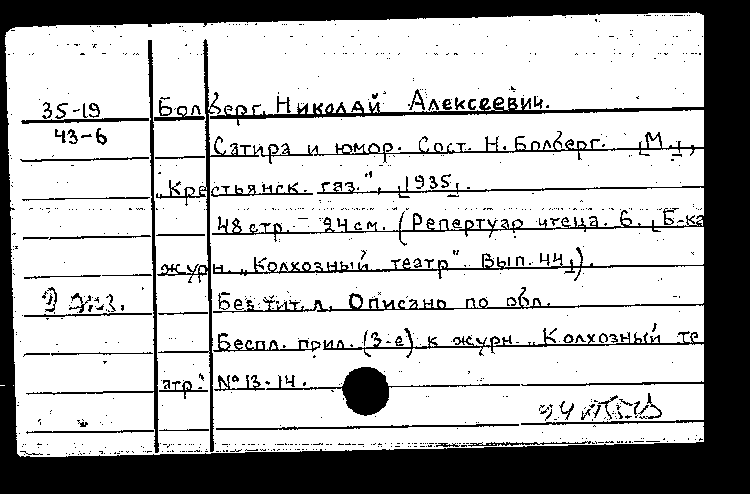 35-19 Болберг, Николай Алексеевич.
43-6
Сатира и юмор. Сост. Н. Болберг. [М.],
"Крестьянск. газ.", [1935].
48 стр. - 24 см. (Репертуар чтеца. 6. [Б-ка
журн. "Колхозный театр". Вып. 44]).
Без тит. л. Описано по обл.
Беспл. прил. (3-е) к журн. "Колхозный те
атр." № 13-14.